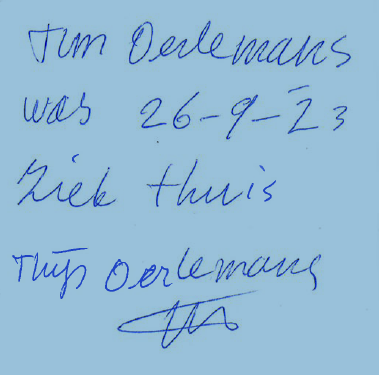 Tim Oerlemans
was 26-9-23
Ziek thuis
Thijs Oerlemans